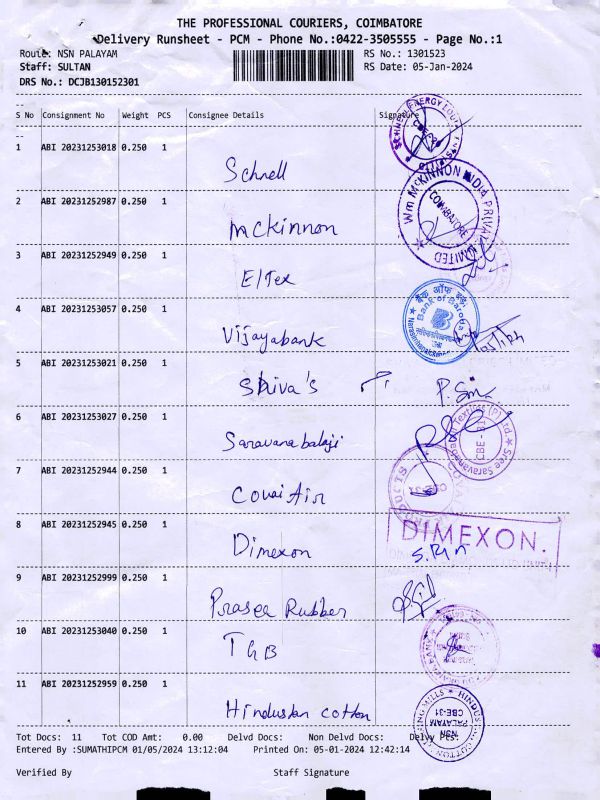 THE PROFESSIONAL COURIERS, COIMBATORE
Delivery Runsheet - PCM - Phone No.:0422-3505555 - Page No.:1
Route: NSN PALAYAM RS No.: 1301523
Staff: SULTAN RS Date: 05-Jan-2024
DRS No.: DCJB130152301
S No Consignment No Weight PCS Consignee Details Signature
1 ABI 20231253018 0.250 1
Schnell
2 ABI 20231252987 0.250 1
Mckinnon
WM MCKINNON INDIA PRIVATE LIMITED
COIMBATORE
3 ABI 20231252949 0.250 1
Eltex
4 ABI 20231253057 0.250 1
Vijayabank
Bank of Baroda
5 ABI 20231253021 0.250 1
Shiva's
6 ABI 20231253027 0.250 1
Saravanabalaji
CBE-31
7 ABI 20231252944 0.250 1
Covai Air
8 ABI 20231252945 0.250 1
Dimexon
DIMEXON.
9 ABI 20231252999 0.250 1
Prasea Rubber
10 ABI 20231253040 0.250 1
TGB
11 ABI 20231252959 0.250 1
Hindustan cotton
NSN PALAYAM CBE-31
Tot Docs: 11 Tot COD Amt: 0.00 Delvd Docs: Non Delvd Docs: Delvy Pts:
Entered By :SUMATHIPCM 01/05/2024 13:12:04 Printed On: 05-01-2024 12:42:14
Verified By Staff Signature